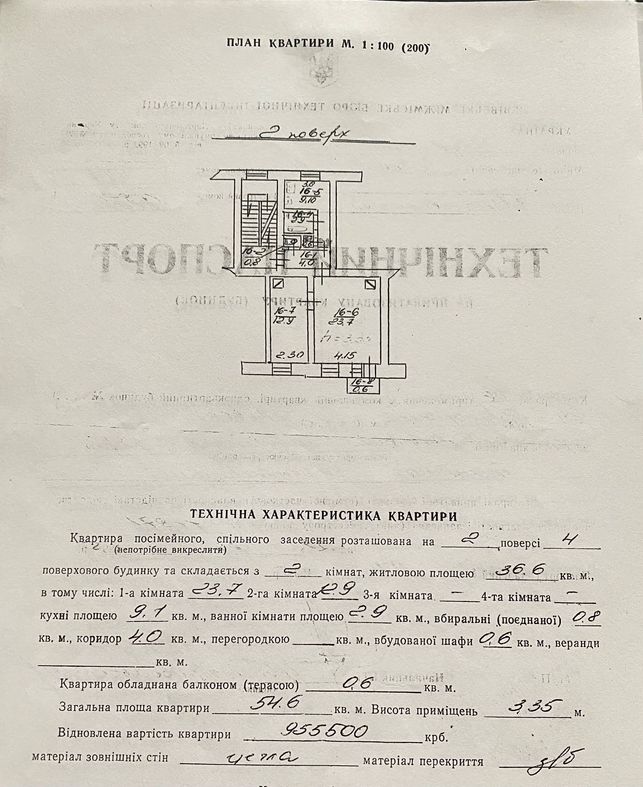 ПЛАН КВАРТИРИ М. 1 : 100 (200)
2 поверх
3.0
16-5
9,10
16-4
2.9
16-2
0,8
16-1
4,0
16-7
12.9
16-6
23,7
h=3.35
2.30
4.15
16-8
0,6
ТЕХНІЧНА ХАРАКТЕРИСТИКА КВАРТИРИ
Квартира посімейного, спільного заселення розташована на 2 поверсі 4
(непотрібне викреслити)
поверхового будинку та складається з 2 кімнат, житловою площею 36.6 кв. м.,
в тому числі: 1-а кімната 23,7 2-га кімната 12.9 3-я кімната — 4-та кімната —
кухні площею 9,1 кв. м., ванної кімнати площею 2.9 кв. м., вбиральні (поєднаної) 0,8
кв. м., коридор 4.0 кв. м., перегородкою кв. м., вбудованої шафи 0,6 кв. м., веранди
кв. м.
Квартира обладнана балконом (терасою) 0,6 кв. м.
Загальна площа квартири 54.6 кв. м. Висота приміщень 3.35 м.
Відновлена вартість квартири 955500 крб.
матеріал зовнішніх стін цегла матеріал перекриття з/б